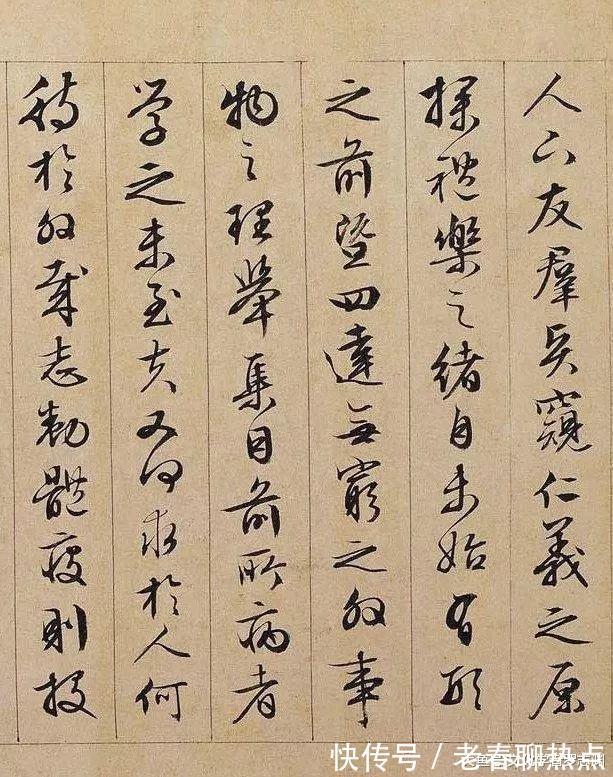 人下友羣賢窺仁義之原
探禮樂之緒自未始有形
之前暨四達無窮之外事
物之理舉集目前所病者
學之未至夫又何求於人何
待於外哉志勌體疲則投
快传号 / 老春聊热点